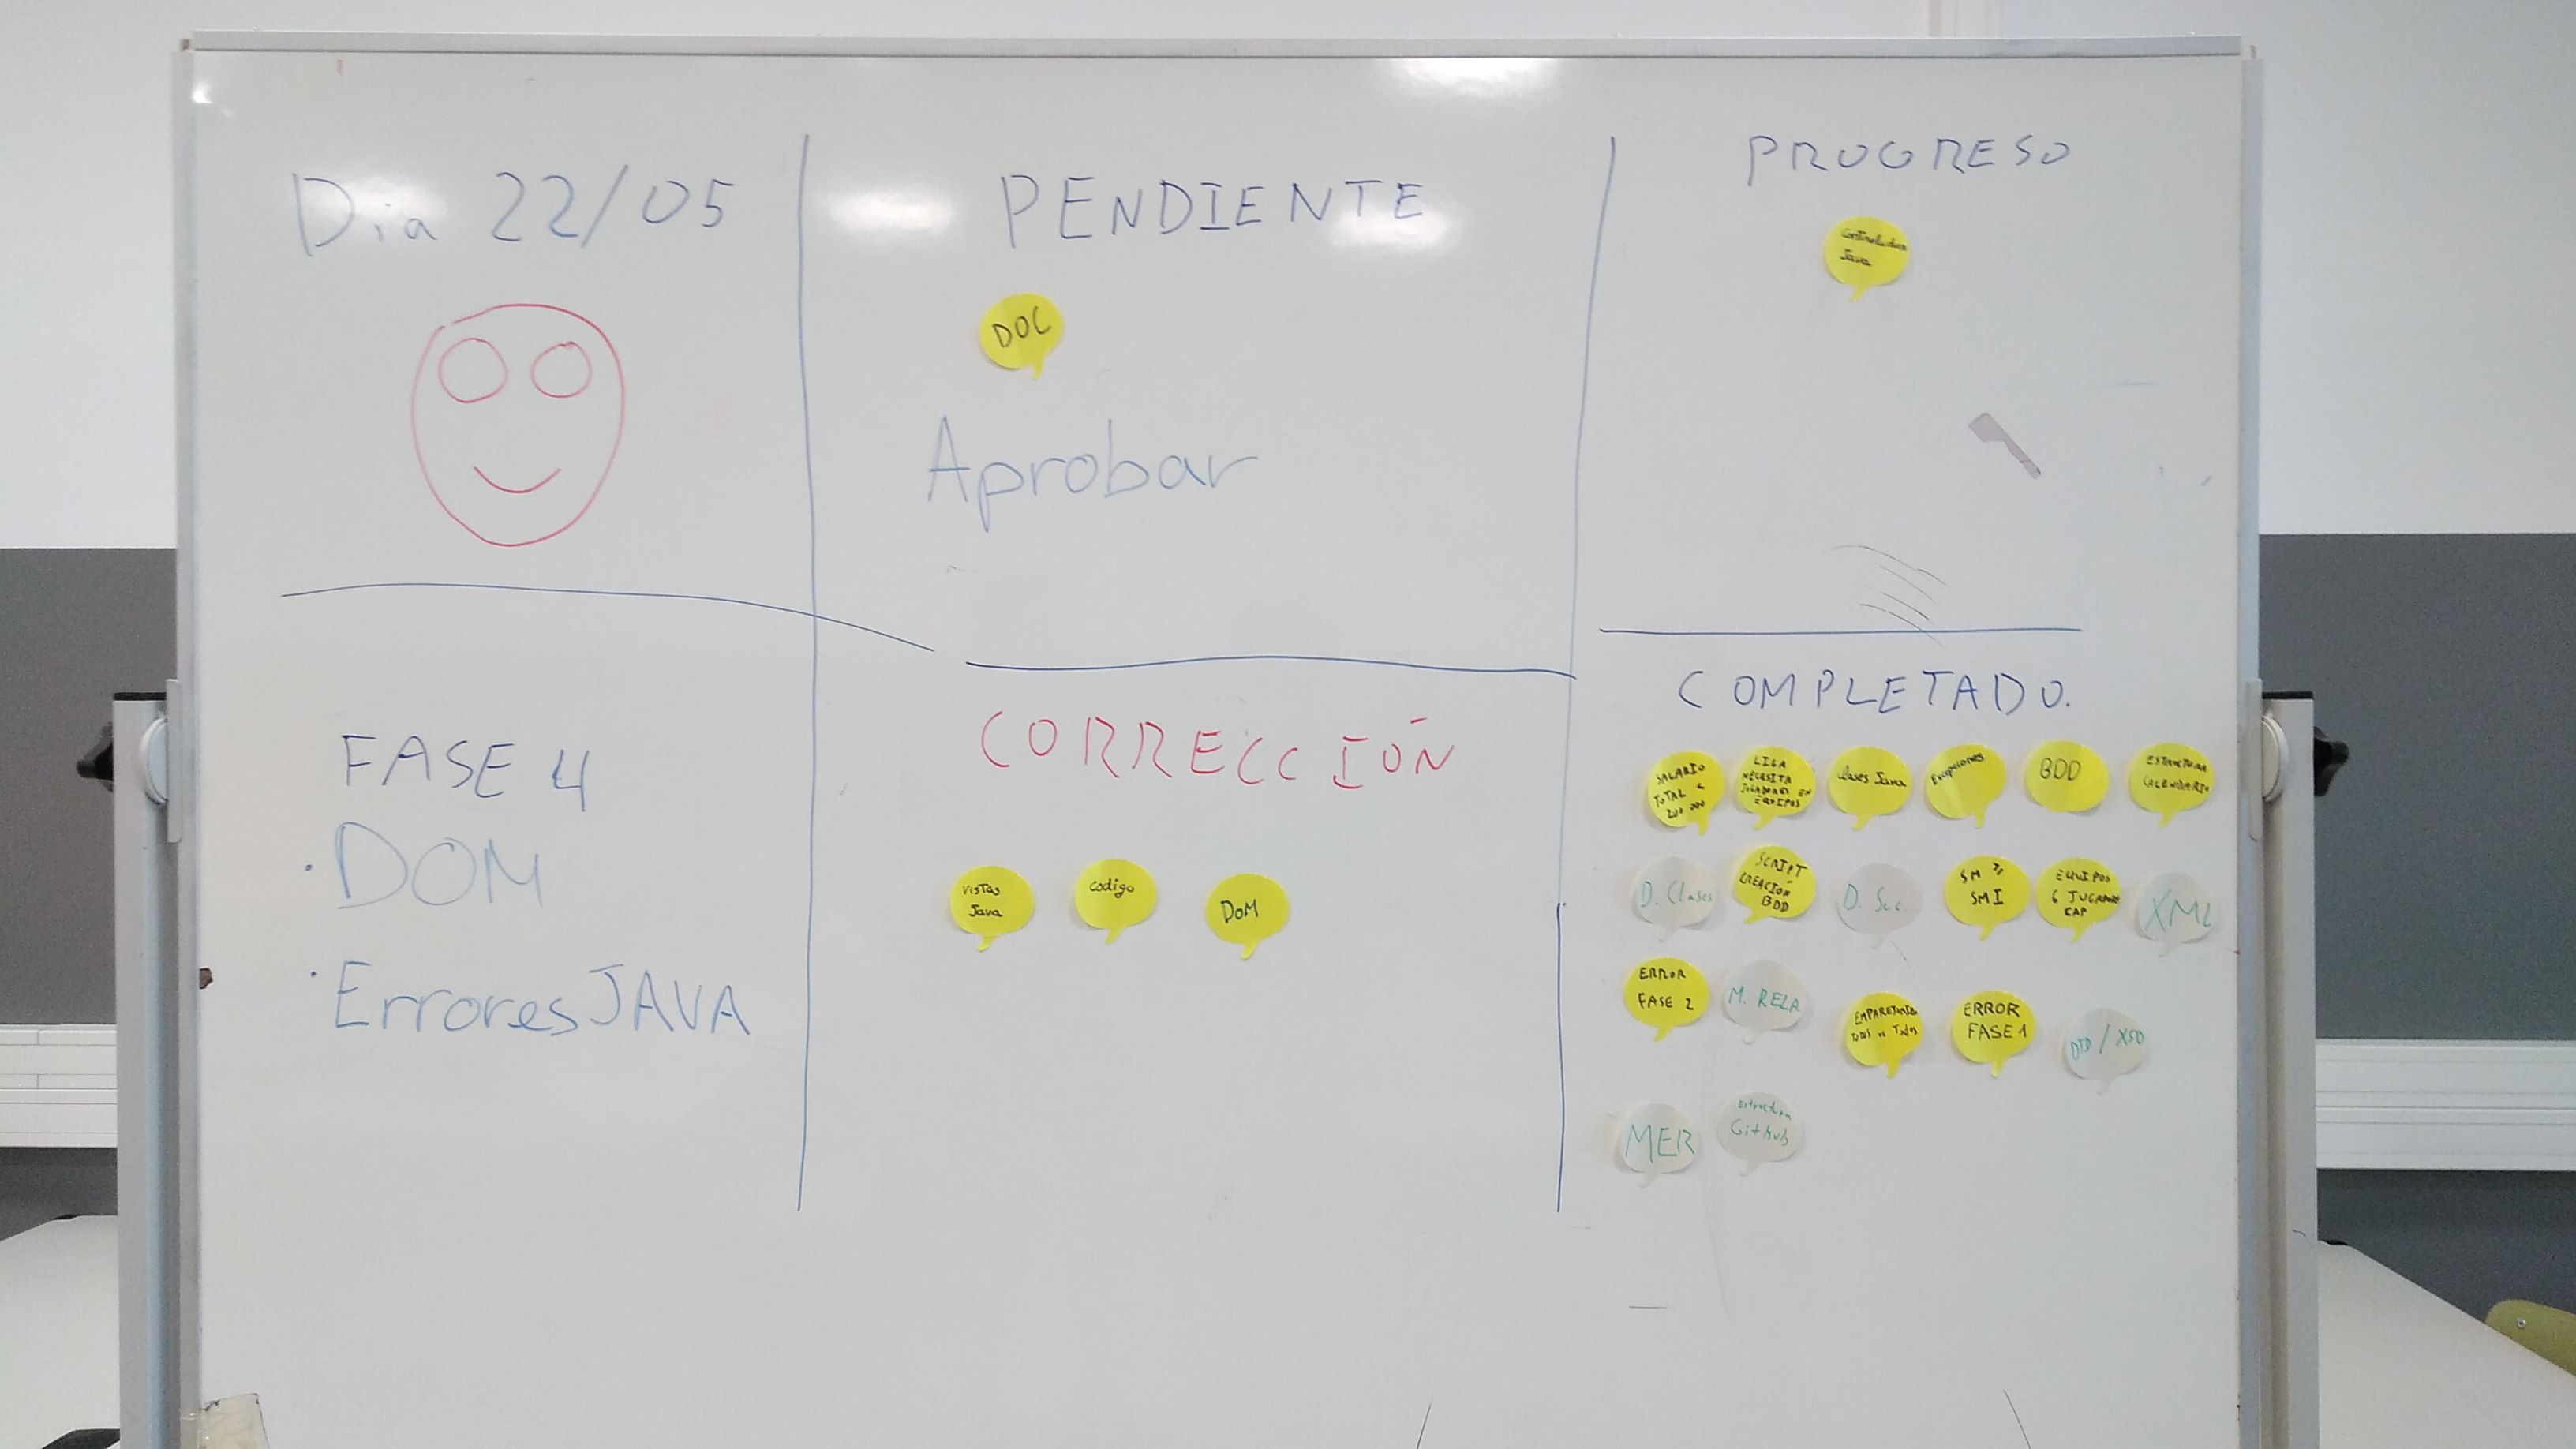 Dia 22/05
FASE 4
· DOM
· Errores JAVA
PENDIENTE
DOC
Aprobar
CORRECCIÓN
Vistas
Java
Codigo
DOM
PROGRESO
Java
COMPLETADO.
SALARIO
TOTAL <
200 000
LIGA
NECESITA
JUGADORES EN
EQUIPOS
Clases Java
BDD
ESTRUCTURA
CALENDARIO
D. Clases
SCRIPT
CREACIÓN
BDD
D. Sec.
SM >
SMI
EQUIPOS
6 JUGADORES
CAP
XML
ERROR
FASE 2
M. RELA
TODOS vs Todos
ERROR
FASE 1
DTD / XSD
MER
Github